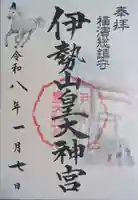 奉拝
横濱総鎮守
伊勢山皇大神宮
令和八年一月七日